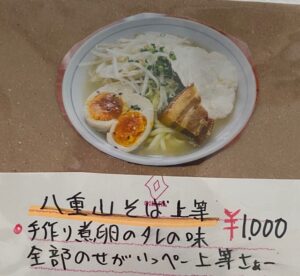 八重山そば上等
¥1000
手作り煮卵のタレの味
全部のせがいっぺー上等さぁー